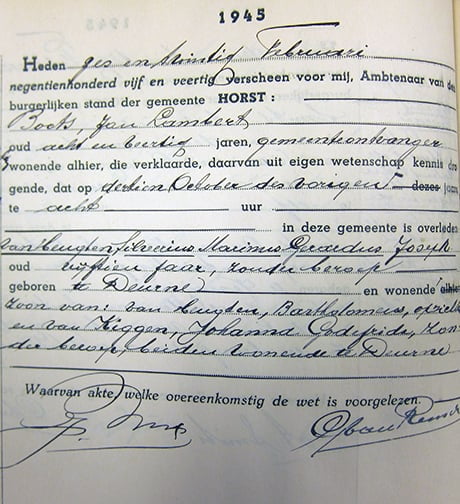 1945
Heden zes en twintig Februari
negentienhonderd vijf en veertig verscheen voor mij, Ambtenaar van den
burgerlijken stand der gemeente HORST:
Boots, Jan Lambert
oud acht en veertig jaren, gemeenteontvanger
wonende alhier, die verklaarde, daarvan uit eigen wetenschap kennis dra
gende, dat op dertien October des vorigen dezes jaars
te acht uur
in deze gemeente is overleden
van Leugten Silverius Marinus Gerardus Joseph
oud vijftien jaar, zonder beroep
geboren te Deurne en wonende alhier
zoon van: van Leugten, Bartholomeus,
en van Kiggen, Johanna Godefrida, zon
der beroep, beiden wonende te Deurne
Waarvan akte, welke overeenkomstig de wet is voorgelezen.